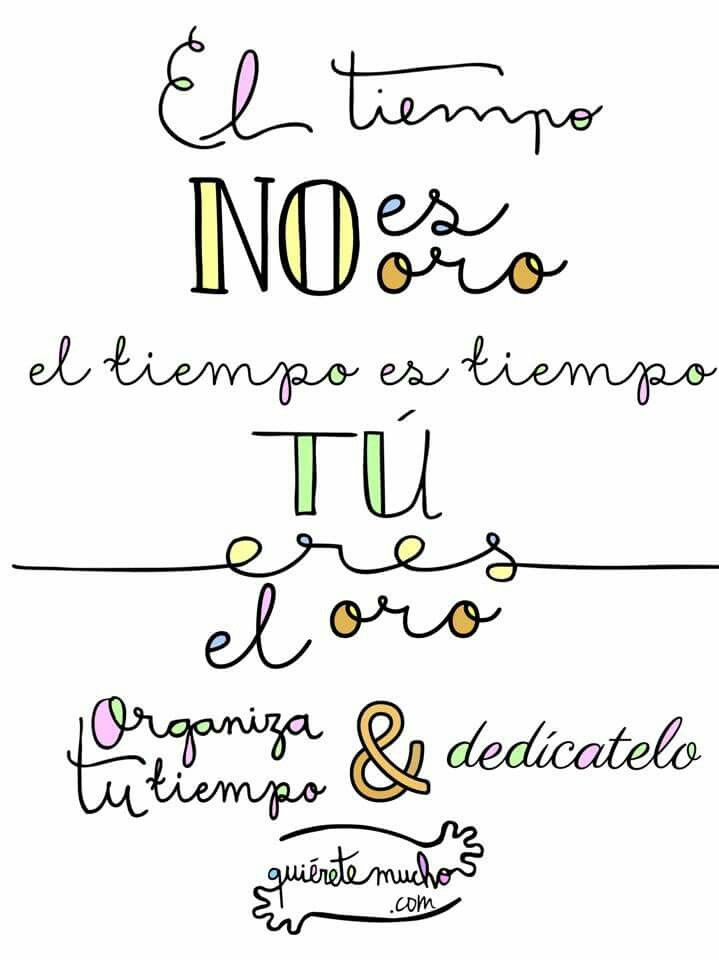 El tiempo
NO es
oro
el tiempo es tiempo
TÚ
eres
el oro
Organiza
tu tiempo & dedícatelo
quiérete mucho
.com